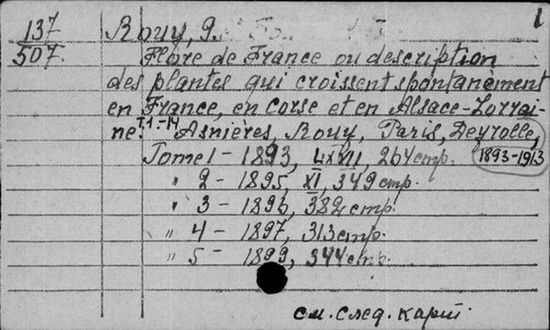 1
137
507.
Rouy, G.
Flore de France ou description
des plantes qui croissent spontanément
en France, en Corse et en Alsace-Lorrai-
ne. T.1.-14 Asnières, Rouy, Paris, Deyrolle,
1893-1913
Tome 1 - 1893, LXVII, 264 стр.
" 2 - 1895, XI, 349 стр.
" 3 - 1896, 382 стр.
" 4 - 1897, 313 стр.
" 5 - 1899, 344 стр.
см. след. карт.